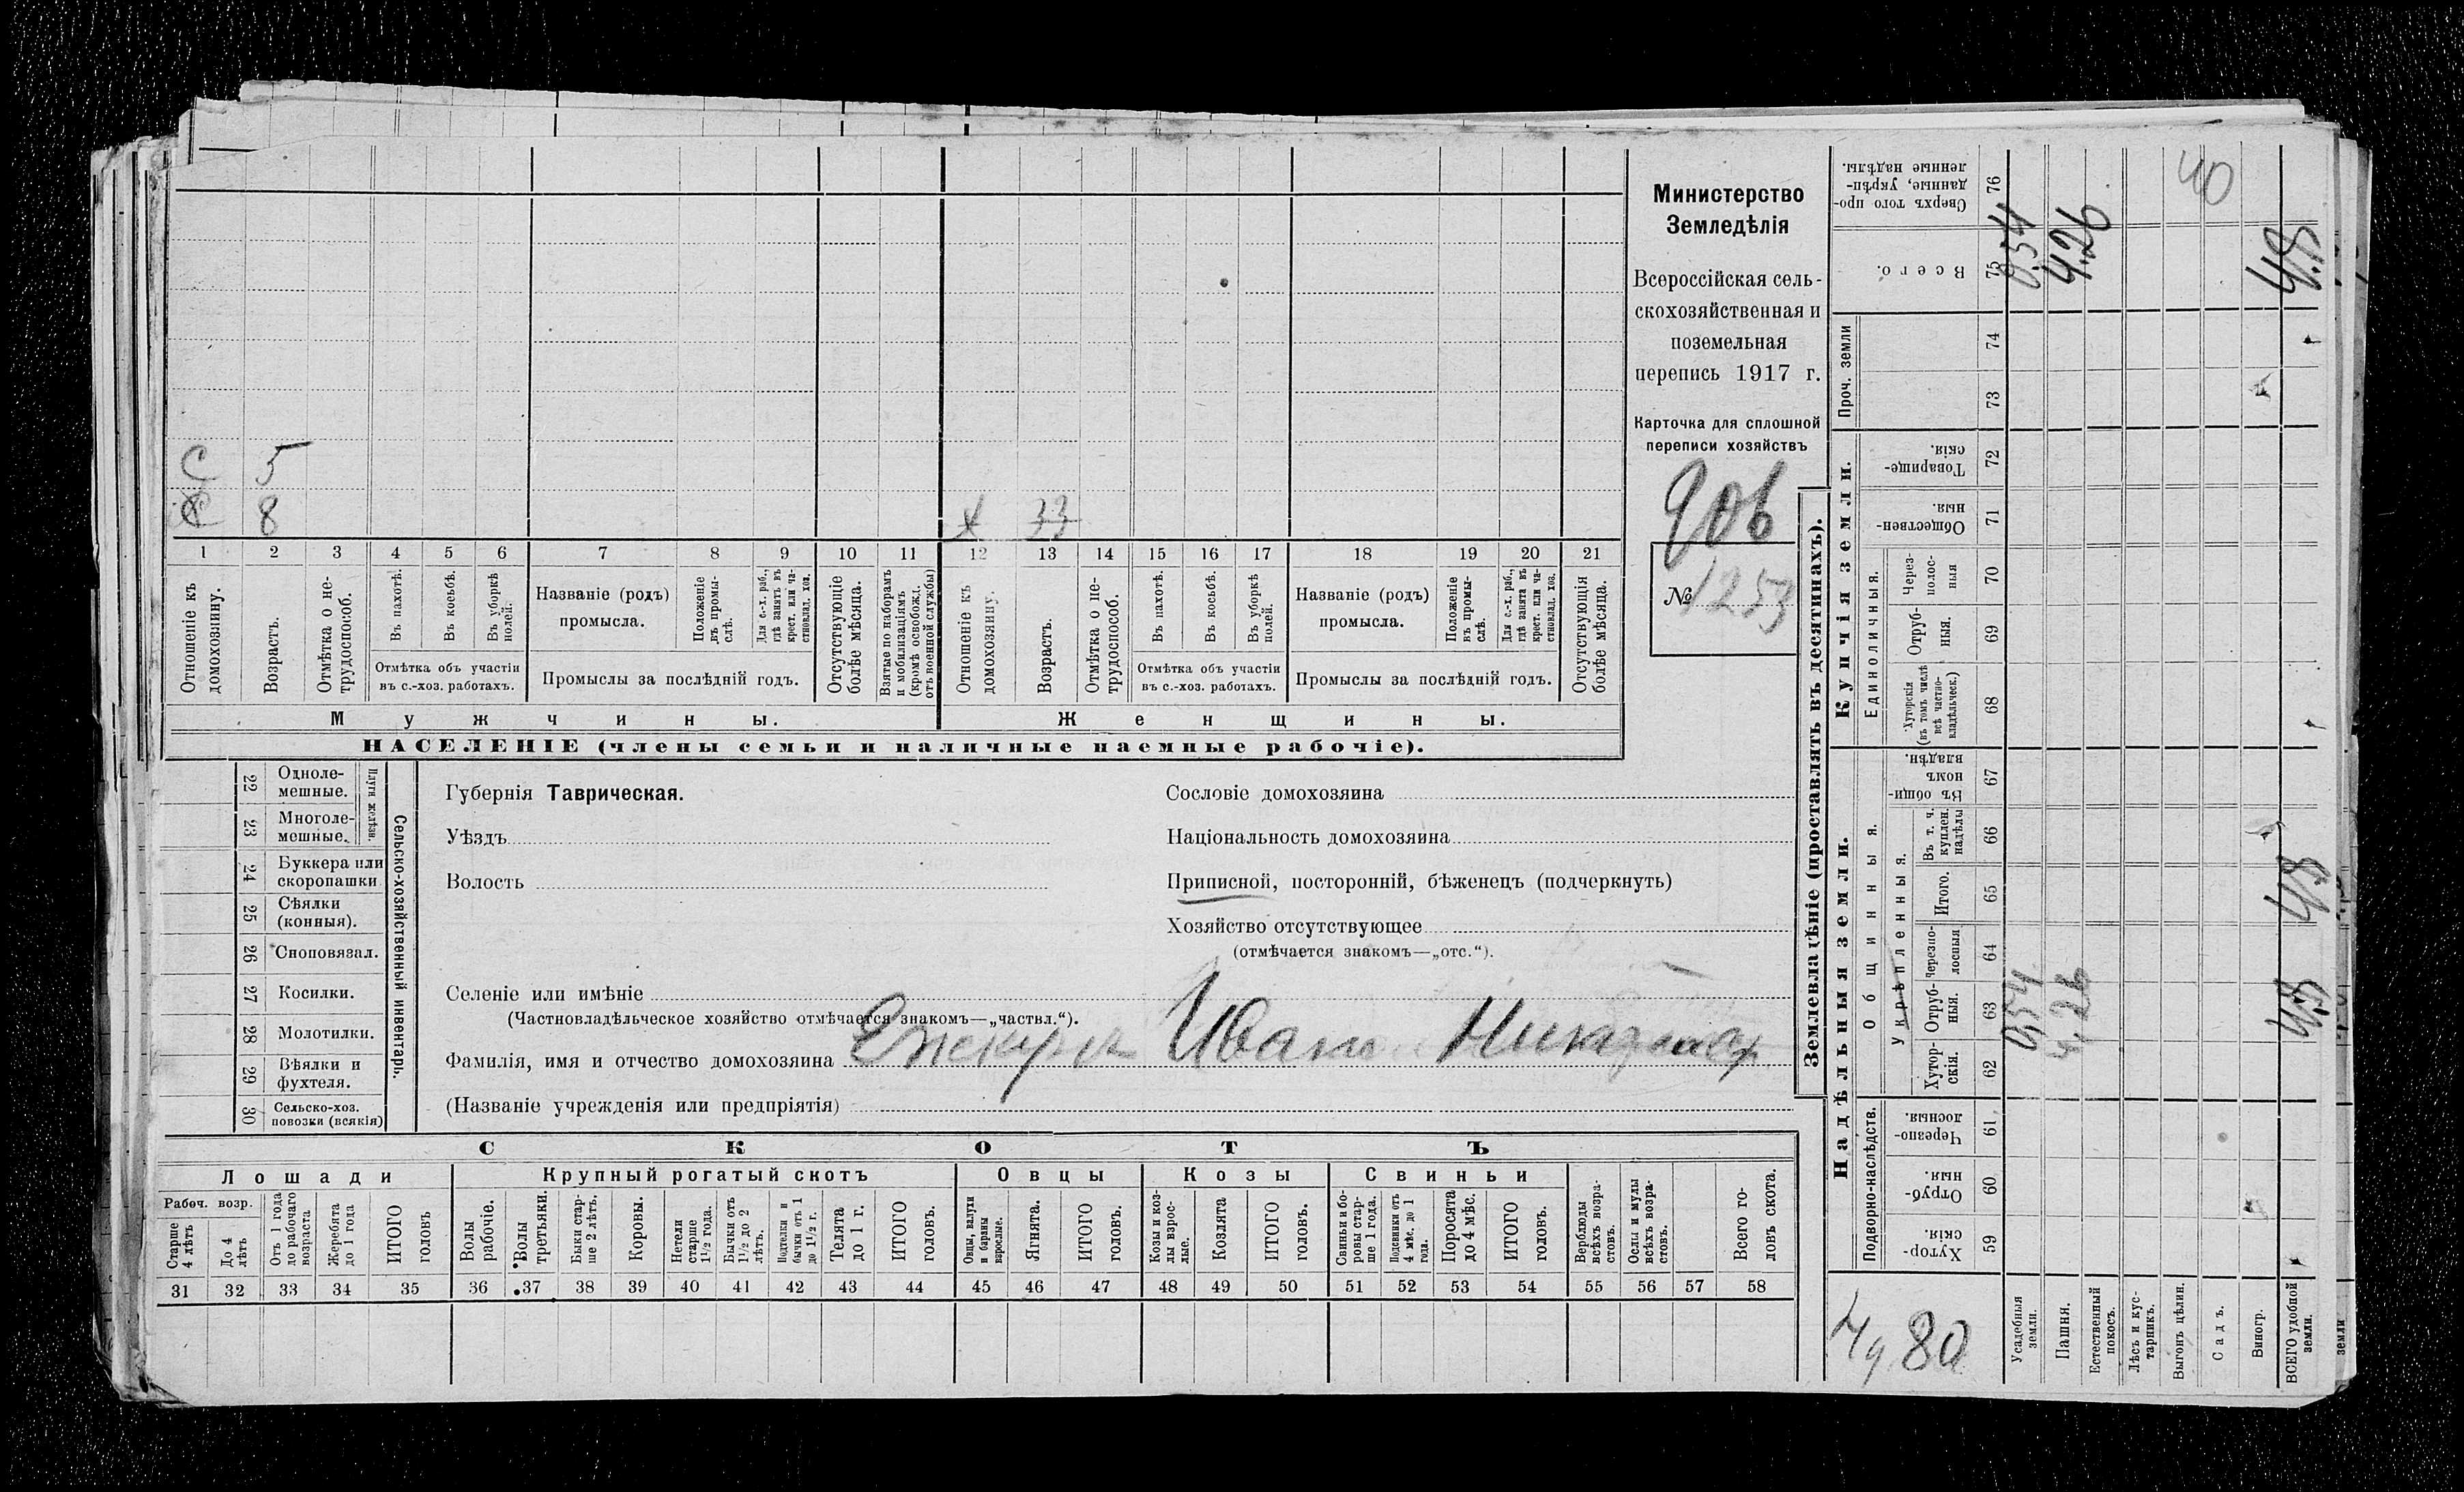 Министерство
Земледѣлія
Всероссійская сель-
скохозяйственная и
поземельная
перепись 1917 г.
Карточка для сплошной
переписи хозяйствъ
№ 1253
С 5
С 8
х 33
1 2 3 4 5 6 7 8 9 10 11 12 13 14 15 16 17 18 19 20 21
Отношеніе къ домохозяину.
Возрастъ.
Отмѣтка о не-трудоспособ.
Въ пахотѣ.
Въ косьбѣ.
Въ уборкѣ полей.
Отмѣтка объ участіи
въ с.-хоз. работахъ.
Названіе (родъ)
промысла.
Положеніе въ промы-слѣ.
Для с.-х. раб., гдѣ занятъ въ крест. или ча-стновлад. хоз.
Промыслы за послѣдній годъ.
Отсутствующіе болѣе мѣсяца.
Взятые по наборамъ и мобилизаціямъ (кромѣ освобожд. отъ военной службы)
Отношеніе къ домохозяину.
Возрастъ.
Отмѣтка о не-трудоспособ.
Въ пахотѣ.
Въ косьбѣ.
Въ уборкѣ полей.
Отмѣтка объ участіи
въ с.-хоз. работахъ.
Названіе (родъ)
промысла.
Положеніе въ промы-слѣ.
Для с.-х. раб., гдѣ занята въ крест. или ча-стновлад. хоз.
Промыслы за послѣдній годъ.
Отсутствующія болѣе мѣсяца.
Мужчины. Женщины.
НАСЕЛЕНІЕ (члены семьи и наличные наемные рабочіе).
Сельско-хозяйственный инвентарь.
Плуги желѣзн.
22 Однолемешные.
23 Многолемешные.
24 Буккера или скоропашки
25 Сѣялки (конныя).
26 Сноповязал.
27 Косилки.
28 Молотилки.
29 Вѣялки и фухтеля.
30 Сельско-хоз. повозки (всякія)
Губернія Таврическая.
Уѣздъ
Волость
Сословіе домохозяина
Національность домохозяина
Приписной, посторонній, бѣженецъ (подчеркнуть)
Хозяйство отсутствующее
(отмѣчается знакомъ—„отс.“).
Селеніе или имѣніе
(Частновладѣльческое хозяйство отмѣчается знакомъ—„частвл.“).
Фамилія, имя и отчество домохозяина Иван
(Названіе учрежденія или предпріятія)
СКОТЪ
Лошади Крупный рогатый скотъ Овцы Козы Свиньи
Рабоч. возр.
Старше 4 лѣтъ
До 4 лѣтъ
Отъ 1 года до рабочаго возраста
Жеребята до 1 года
ИТОГО головъ
Волы рабочіе.
Волы третьяки.
Быки стар-ше 2 лѣтъ.
Коровы.
Нетели старше 1½ года.
Бычки отъ 1½ до 2 лѣтъ.
Подтелки и бычки отъ 1 до 1½ г.
Телята до 1 г.
ИТОГО головъ.
Овцы, валухи и бараны взрослые.
Ягнята.
ИТОГО головъ.
Козы и коз-лы взрос-лые.
Козлята
ИТОГО головъ.
Свиньи и бо-ровы стар-ше 1 года.
Подсвинки отъ 4 мѣс. до 1 года.
Поросята до 4 мѣс.
ИТОГО головъ.
Верблюды всѣхъ возра-стовъ.
Ослы и мулы всѣхъ возра-стовъ.
Всего го-ловъ скота.
31 32 33 34 35 36 37 38 39 40 41 42 43 44 45 46 47 48 49 50 51 52 53 54 55 56 57 58
Землевладѣніе (проставлять въ десятинахъ).
Надѣльныя земли.
Купчія земли.
Проч. земли
Подворно-наслѣдств.
Общинныя.
Укрѣпленныя.
Единоличныя.
59 Хутор-скія.
60 Отруб-ныя.
61 Черезпо-лосныя.
62 Хутор-скія.
63 Отруб-ныя.
64 Черезпо-лосныя
65 Итого.
66 Въ т. ч. куплен. надѣлы
67 Въ общи-номъ владѣн.
68 Хуторскія (въ томъ числѣ всѣ частно-владѣльческ.)
69 Отруб-ныя.
70 Через-полос-ныя
71 Обществен-ныя.
72 Товарище-скія.
73
74
75 Всего.
76 Сверхъ того про-данные, укрѣп-ленные надѣлы.
Усадебныя земли. 0,54 0,54
Пашня. 4,26 4,26
Естественный покосъ.
Лѣсъ и кус-тарникъ.
Выгонъ цѣлин. 40
Садъ.
Виногр.
ВСЕГО удобной земли. 4,8 4,8 4,8
земли
80